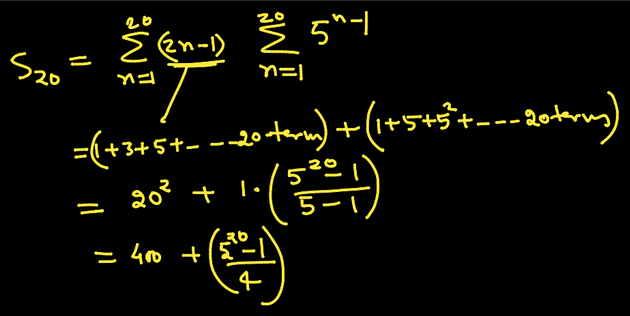 S₂₀ = ∑_{n=1}^{20} (2n-1) ∑_{n=1}^{20} 5^{n-1}
= (1+3+5+- - --20 term) + (1+5+5²+- --- 20 terms)
= 20² + 1· ((5²⁰-1)/(5-1))
= 400 + ((5²⁰-1)/4)